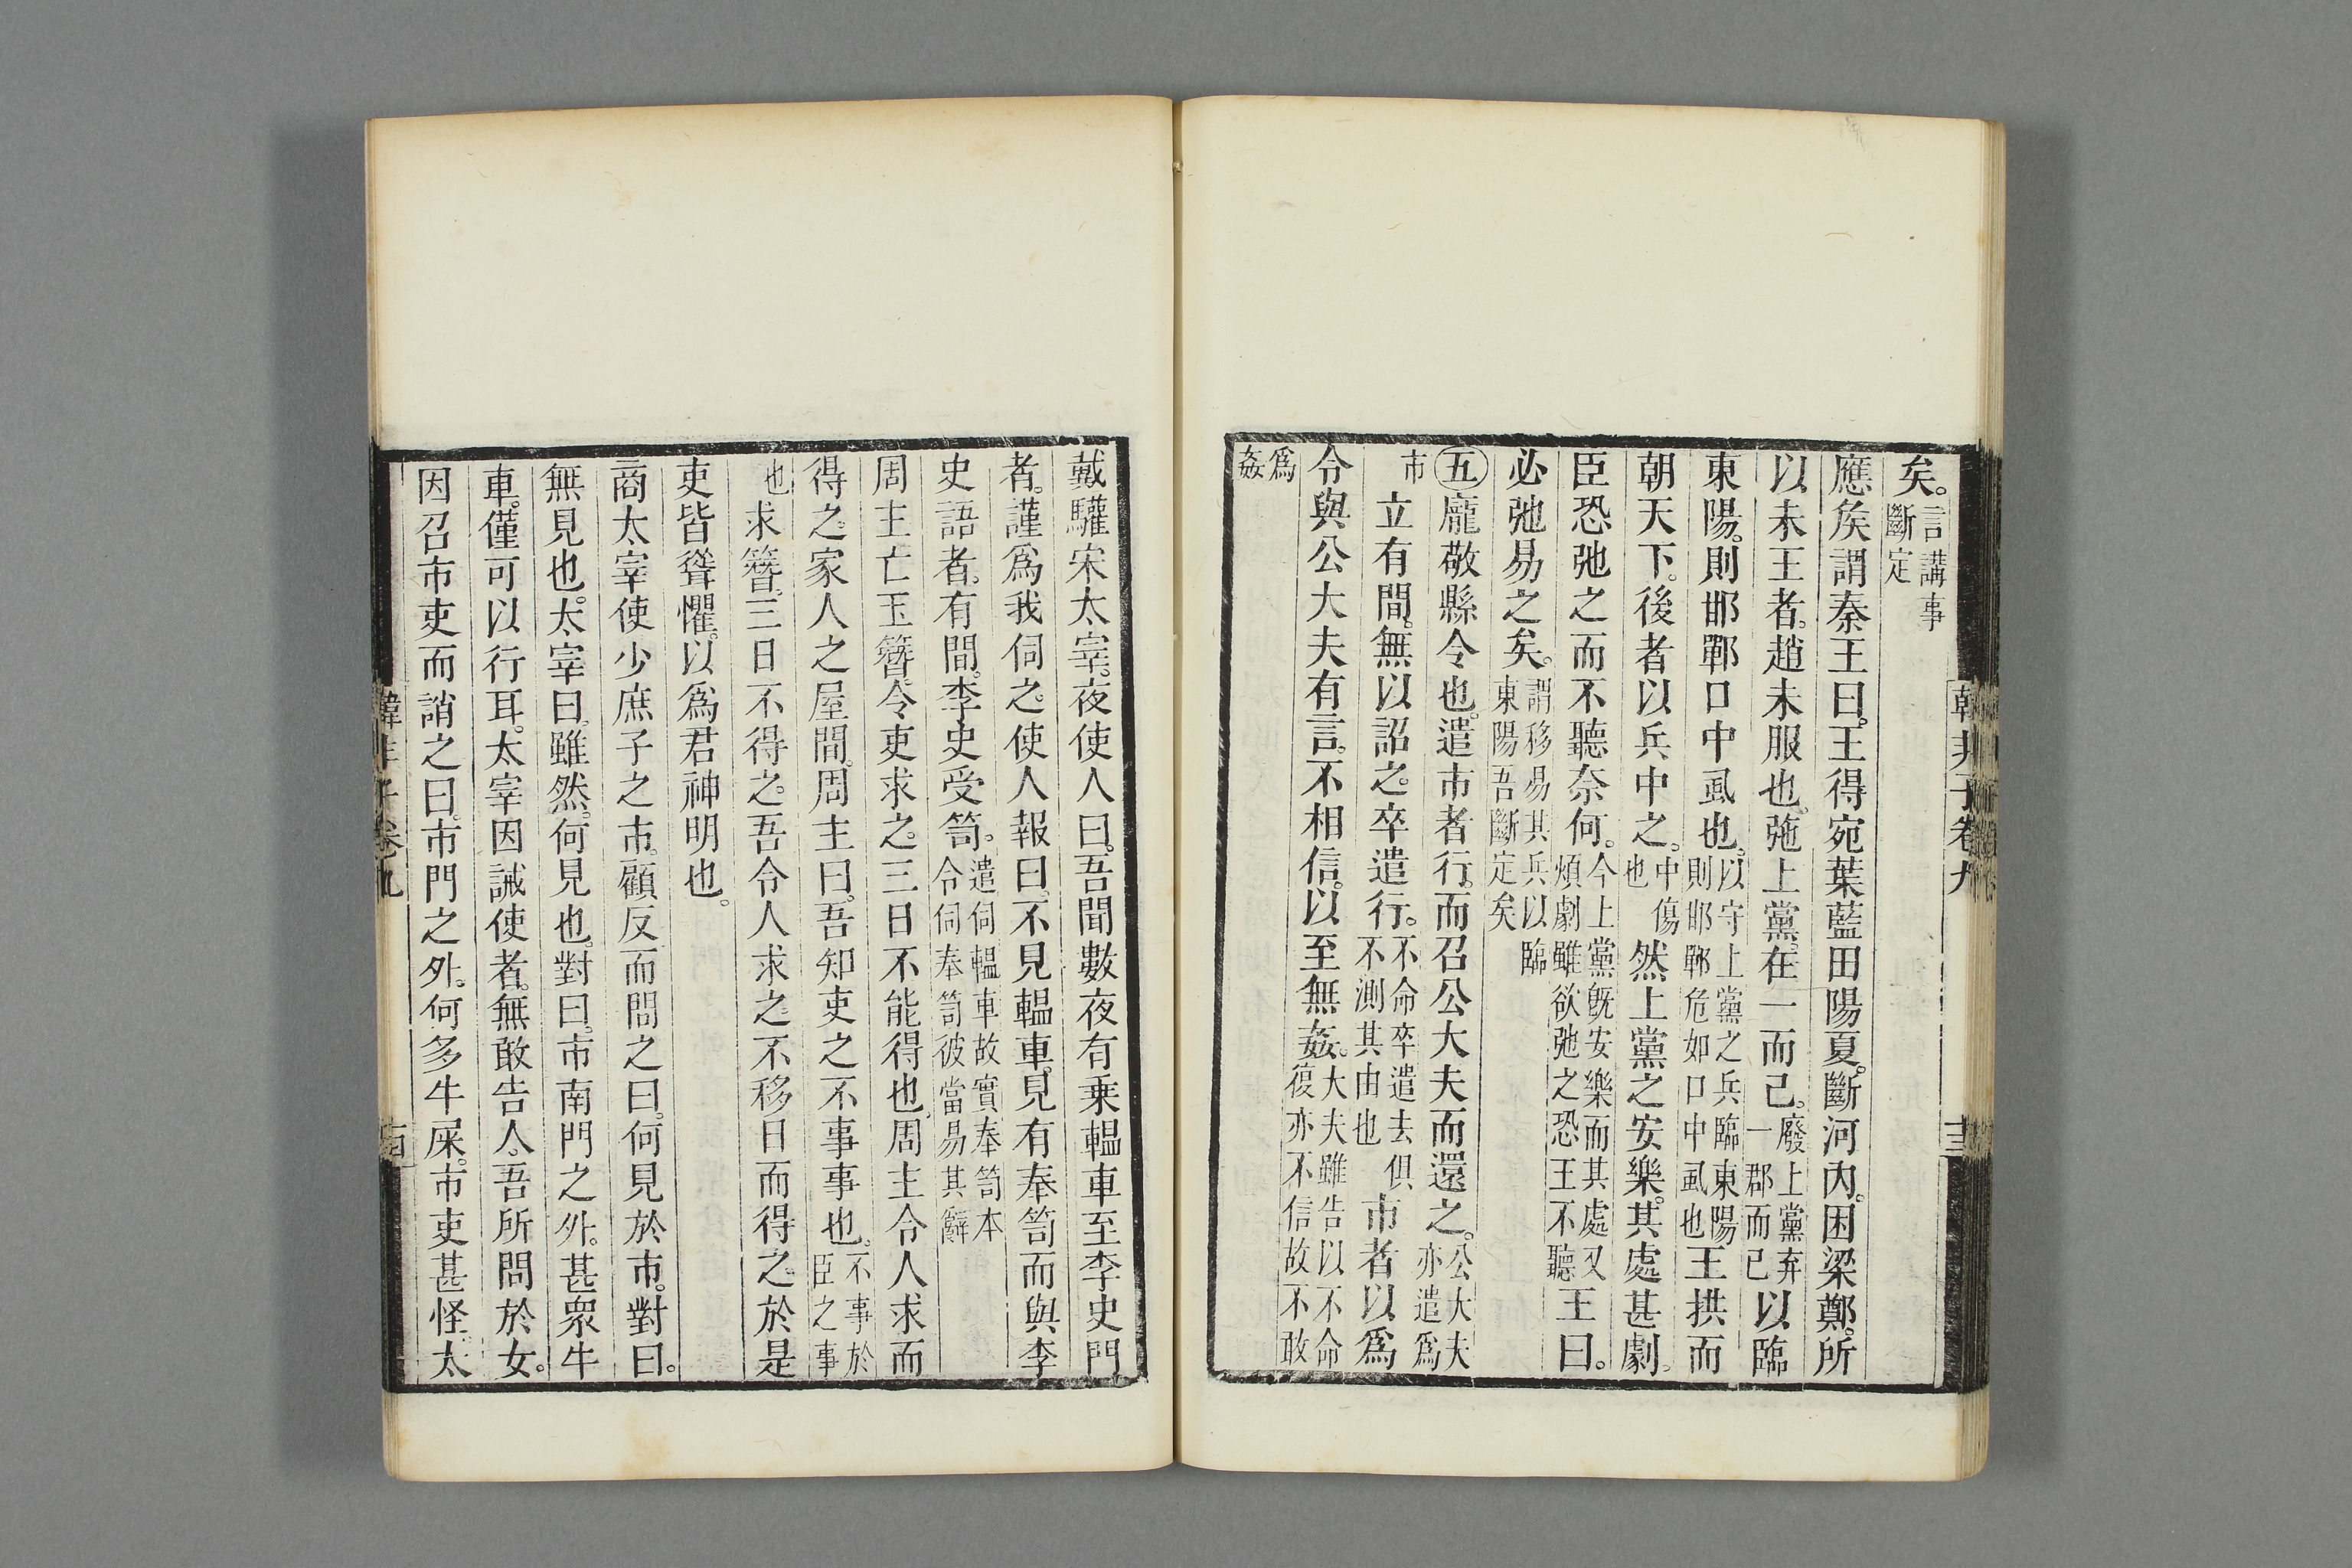 矣。言講事斷定
應矦謂秦王曰。王得宛葉藍田陽夏。斷河內。困梁鄭。所
以未王者。趙未服也。弛上黨。在一而已。廢上黨弃一郡而已以臨
東陽。則邯鄲口中虱也。以守上黨之兵臨東陽則邯鄲危如口中虱也王拱而
朝天下。後者以兵中之。中傷也然上黨之安樂。其處甚劇。
臣恐弛之而不聽奈何。今上黨旣安樂而其處又煩劇雖欲弛之恐王不聽王曰。
必弛易之矣。謂移易其兵以臨東陽吾斷定矣
五龐敬縣令也。遣市者行。而召公大夫而還之。公大夫亦遣爲
市立有間。無以詔之。卒遣行。不命卒遣去俱不測其由也市者以爲
令與公大夫有言。不相信。以至無姦。大夫雖告以不命復亦不信故不敢
爲姦
韓非子卷九
十三
戴驩宋太宰。夜使人曰。吾聞數夜有乗轀車至李史門
者。謹爲我伺之。使人報曰。不見轀車。見有奉笥而與李
史語者。有間。李史受笥。遣伺轀車故實奉笥本令伺奉笥彼當易其辭
周主亡玉簪。令吏求之。三日不能得也。周主令人求而
得之家人之屋間。周主曰。吾知吏之不事事也。不事於臣之事
也求簪。三日不得之。吾令人求之。不移日而得之。於是
吏皆聳懼。以爲君神明也。
商太宰使少庶子之市。顧反而問之曰。何見於市。對曰。
無見也。太宰曰。雖然。何見也。對曰。市南門之外。甚衆牛
車。僅可以行耳。太宰因誡使者。無敢告人。吾所問於女。
因召市吏而誚之曰。市門之外。何多牛屎。市吏甚怪。太
韓非子卷九
十四